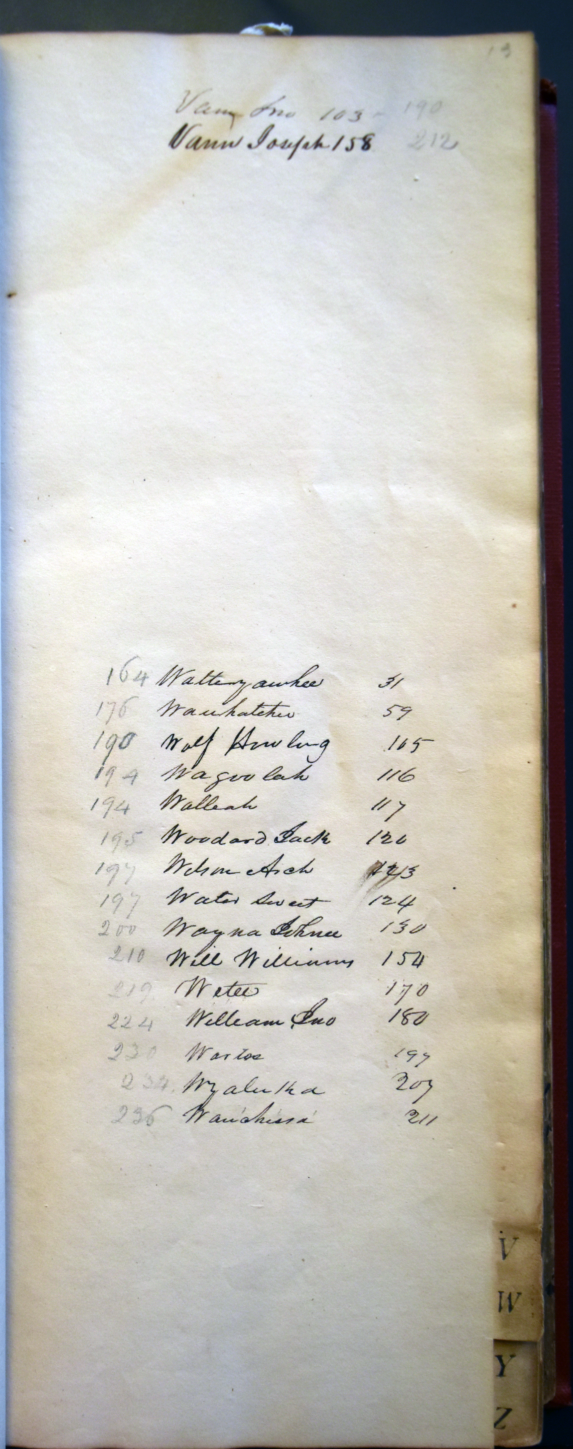 13
Vann Jno 103 - 190
Vann Joseph 158 212
164 Watteyawhee 31
176 Wauhatchie 59
190 Wolf Howling 105
194 Wagoolah 116
194 Walleah 117
195 Woodard Jack 120
197 Wilson Arch 123
197 Water Sweet 124
200 Wayna Johnee 130
210 Will Williams 154
219 Wetee 170
224 William Jno 180
230 197
234 Wyaluka 207
236 211
V
W
Y
Z